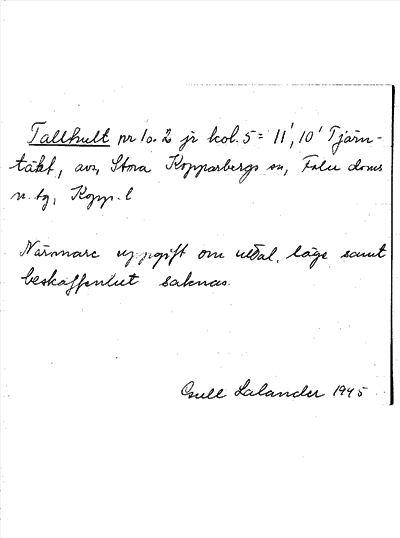 Tallhult nr 1 o. 2 jr kol. 5 = 11', 10' Tjärn-
täkt, avs, Stora Kopparbergs sn, Falu doms
n. tg, Kopp. l
Närmare uppgift om uttal, läge samt
beskaffenhet saknas.
Gull Lalander 1945